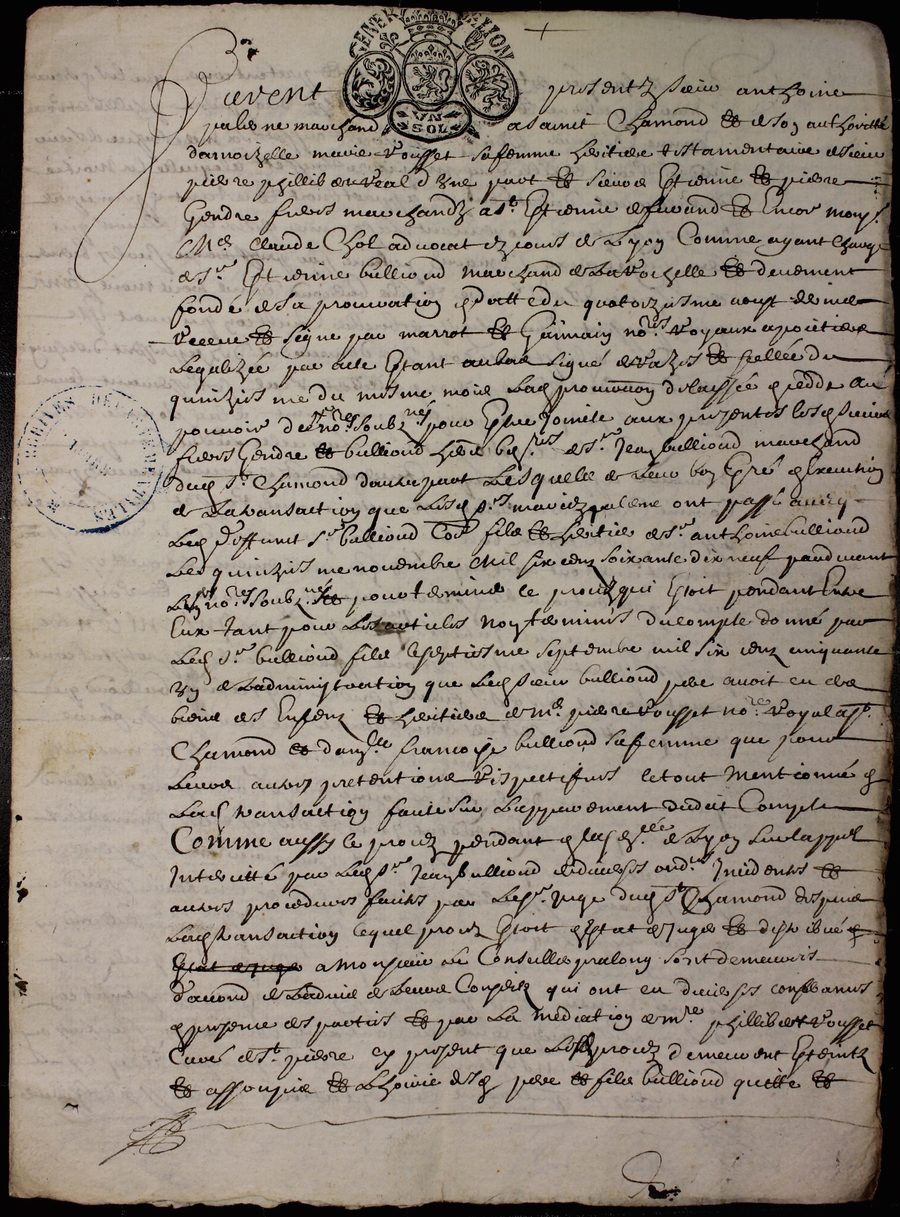 GENER LYON
UN SOL
Furent presents sieur anthoine
palerne marchand a sainct Chamond et de son authorité
damoizelle marie rousset sa femme heritiere testamentaire de sieur
pierre phillibert real d'une part et sieurs Estienne et pierre
Gendre freres marchandz a st Estienne de furand et Encor
Claude Chol advocat ez cours de Lyon Comme ayant charge
de sr Estienne bullioud marchand de la rochelle et deuement
fondé de sa procuration en datte du quatorziesme aoust dernier
receue et signé par marrot et Germain nores royaux
Legalizée par acte Estant au bas signé et scellée du
quinziesme du mesme mois Lad procuration delaissée
pouvoir des nores soubznés pour Estre Jointe aux presentes lesd sieurs
freres Gendre et bullioud de sr Jean bullioud marchand
dud st Chamond d'autre part Lesquelles de leur bon gré en Execution
de La transaction que Lesd mariez palerne ont passé avec
Led deffunt sr bullioud fils et heritier de sr anthoine bullioud
Le quinziesme novembre mil six cens soixante dix neuf pardevant
Les nores soubznés pour terminer le procez qui Estoit pendant Entre
Eux tant pour Les articles non terminés du compte donné par
Led sr bullioud fils le septiesme septembre mil six cens cinquante
un de L'administration que Led sieur bullioud pere avoit eu des
biens des Enfens et heritiers de me pierre rousset nore royal a st
Chamond et damlle françoise bullioud sa femme que pour
Leurs autres pretentions respectives le tout mentionné en
Lad transaction faute de L'appurement dudit Compte
Comme aussy le procez pendant en la de Lyon sur l'appel
Interietté par Led sr Jean bullioud de diverses ordres Incidents et
autres procedures faictes par Le sr Juge dud st Chamond despuis
Lad transaction lequel procez Estoit en Estat de Juger et distribué
a Monsieur Le Conseiller pralong sont demeurés
d'accord de L'advis de Leurs Conseils qui ont eu diverses conferances
en presence des parties et par La mediation de mre phillibert rousset
Curé de st pierre cy present que Lesd procez demeurent Esteintz
et assoupis et L'hoirie desd pere et fils bullioud quitte et